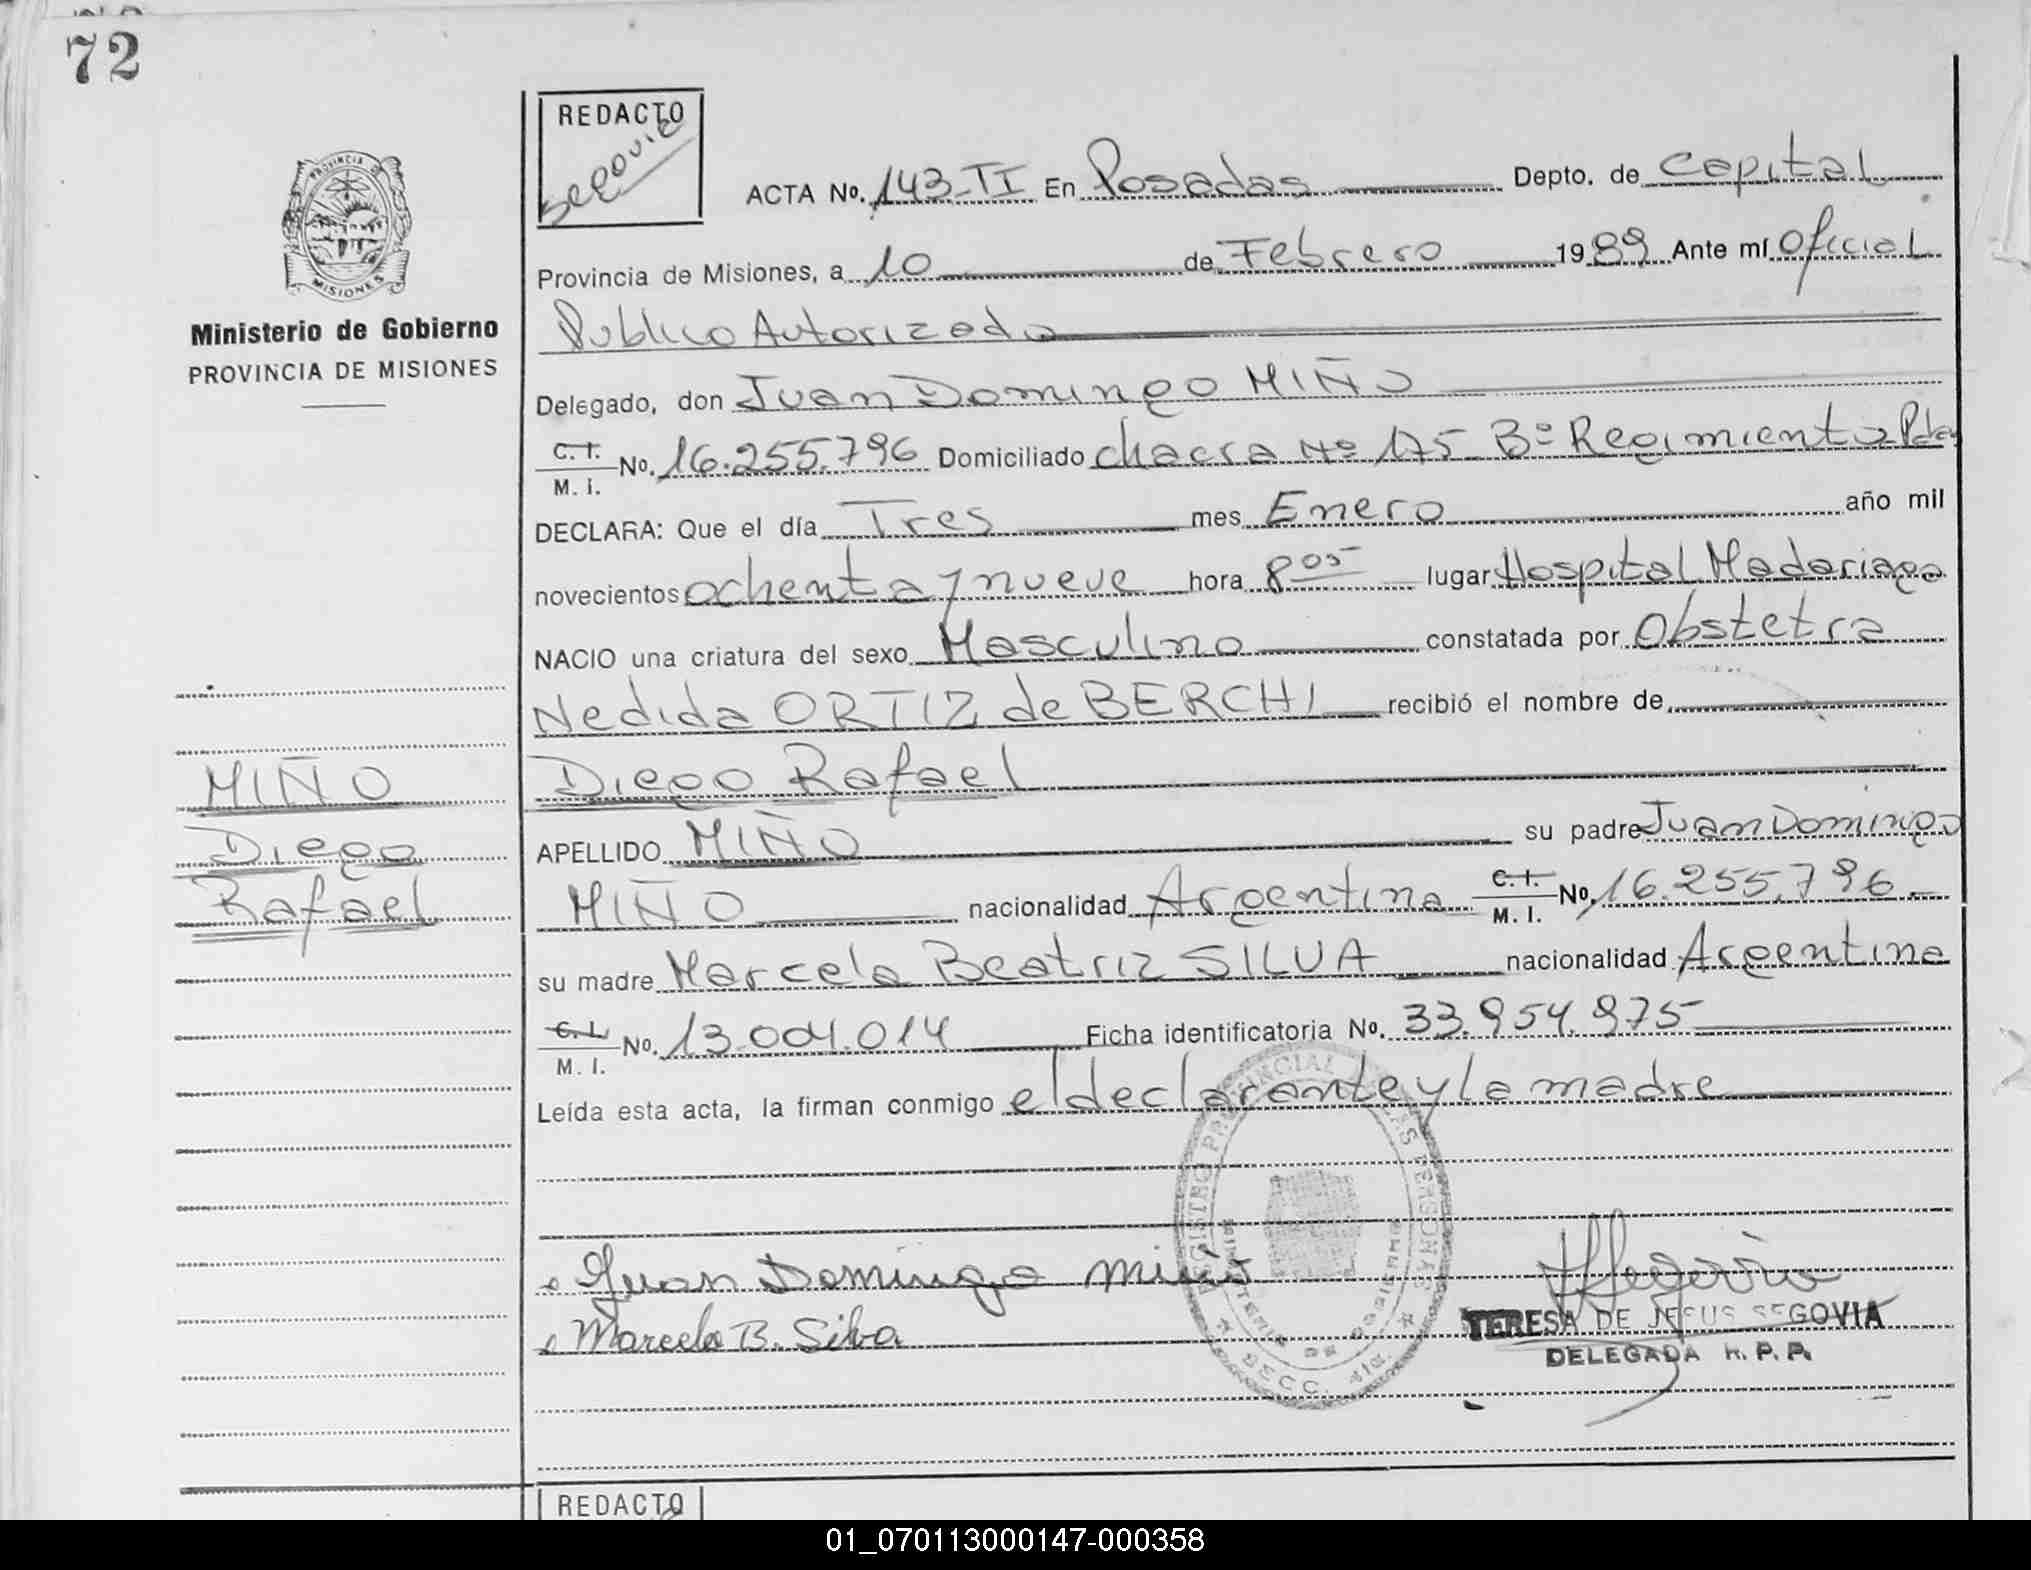 72
REDACTO
Segovia
ACTA No. 143-TI En Posadas Depto. de Capital
Provincia de Misiones, a 10 de Febrero 1989 Ante mí Oficial
Publico Autorizado
PROVINCIA DE
MISIONES
Ministerio de Gobierno
PROVINCIA DE MISIONES
Delegado, don Juan Domingo MIÑO
C.I. M. I. No. 16.255.796 Domiciliado Chacra Nº 175 Bº Regimiento Pdas
DECLARA: Que el día Tres mes Enero año mil
novecientos ochenta y nueve hora 8 05 lugar Hospital Madariaga
NACIO una criatura del sexo Masculino constatada por Obstetra
Nedida ORTIZ de BERCHI recibió el nombre de
Diego Rafael
MIÑO
Diego
Rafael
APELLIDO MIÑO su padre Juan Domingo
MIÑO nacionalidad Argentina C.I. M. I. No. 16.255.796
su madre Marcela Beatriz SILVA nacionalidad Argentina
C.I. M. I. No. 13.004.014 Ficha identificatoria No. 33.954.975
Leída esta acta, la firman conmigo el declarante y la madre
REGISTRO PROVINCIAL DE LAS PERSONAS
MINISTERIO DE GOBIERNO
SECC.
Juan Domingo Miño
Marcela B. Silva
TERESA DE JESUS SEGOVIA
DELEGADA R. P. P.
REDACTO
01_070113000147-000358